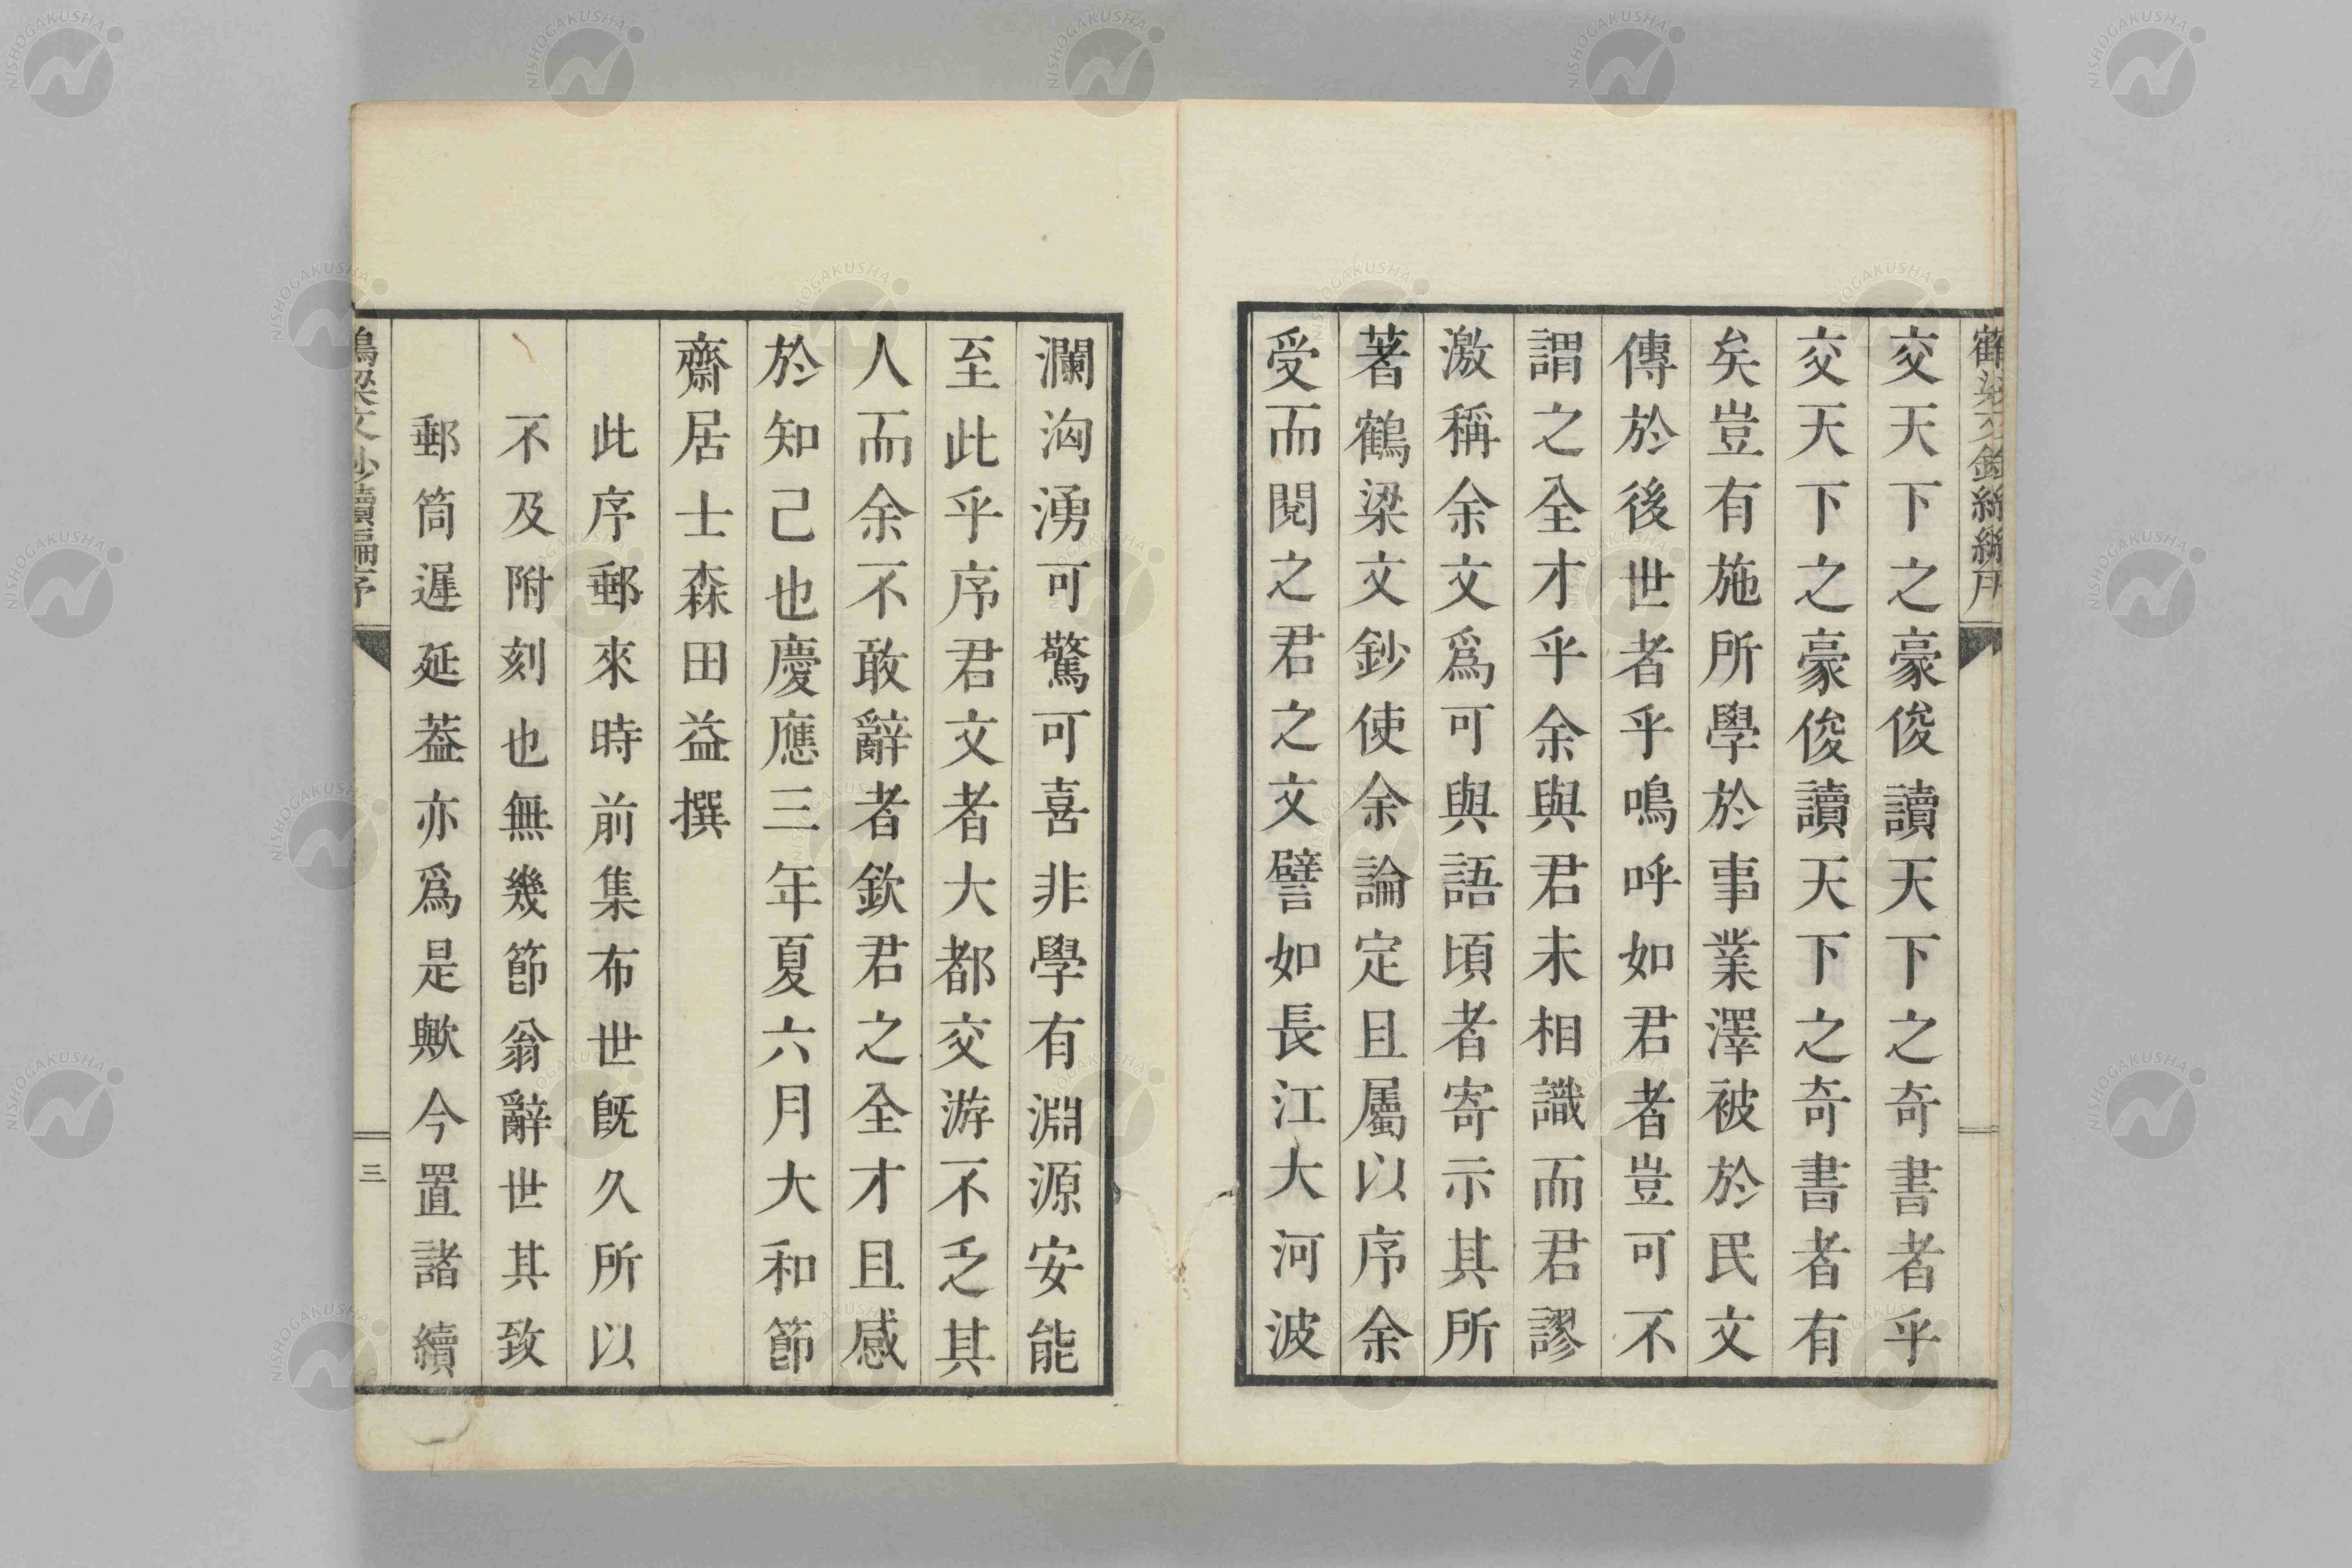 交天下之豪俊讀天下之奇書者乎
交天下之豪俊讀天下之奇書者有
矣豈有施所學於事業澤被於民文
傳於後世者乎鳴呼如君者豈可不
謂之全才乎余與君未相識而君謬
激稱余文爲可與語頃者寄示其所
著鶴梁文鈔使余論定且屬以序余
受而閱之君之文譬如長江大河波
瀾洶湧可驚可喜非學有淵源安能
至此乎序君文者大都交游不乏其
人而余不敢辭者欽君之全才且感
於知己也慶應三年夏六月大和節
齋居士森田益撰
此序郵來時前集布世既久所以
不及附刻也無幾節翁辭世其致
郵筒遲延葢亦爲是歟今置諸續
鶴梁文鈔續編序
三
NISHOGAKUSHA